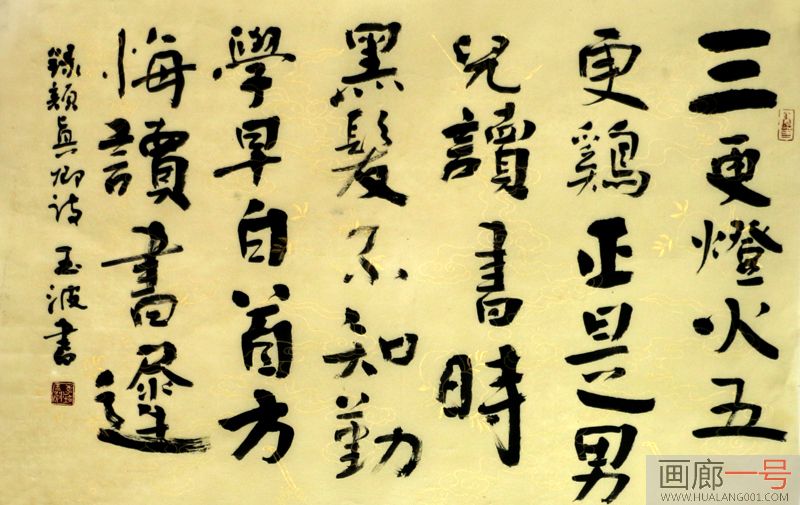 三更燈火五
更鷄正是男
兒讀書時
黑髮不知勤
學早白首方
悔讀書遲
錄顏眞卿詩 玉波書
画廊一号
WWW.HUALANG001.COM